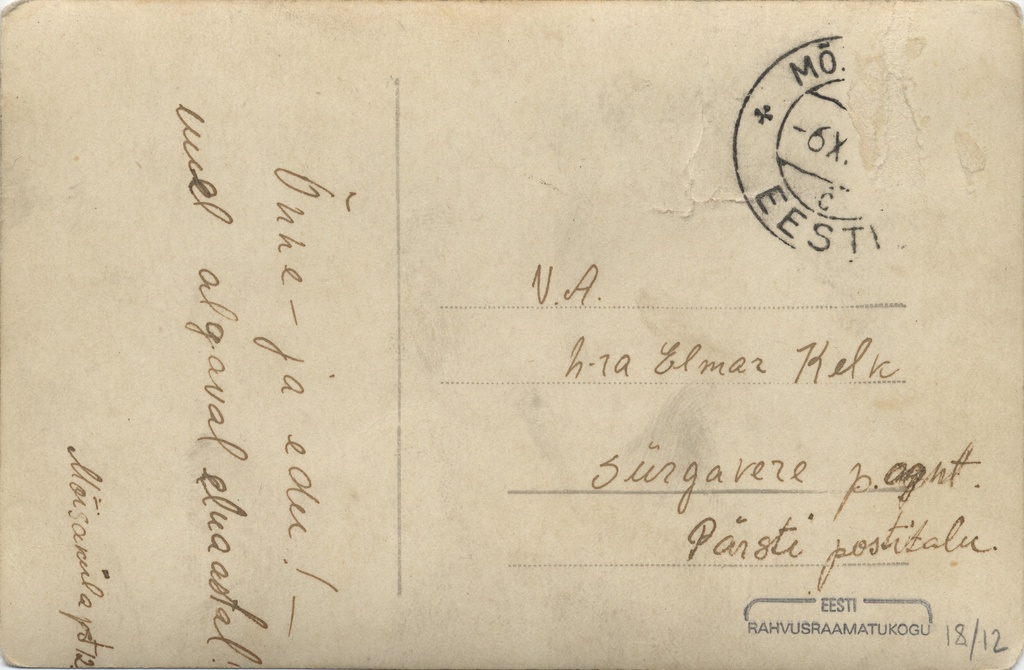 Õnne- ja edu! -
uuel algaval eluaastal!
MÕ.
-6 X.
EESTI
V. A.
h-ra Elmar Kelk
Sürgavere p. agnt.
Pärsti postitalu.
EESTI
RAHVUSRAAMATUKOGU
18/12